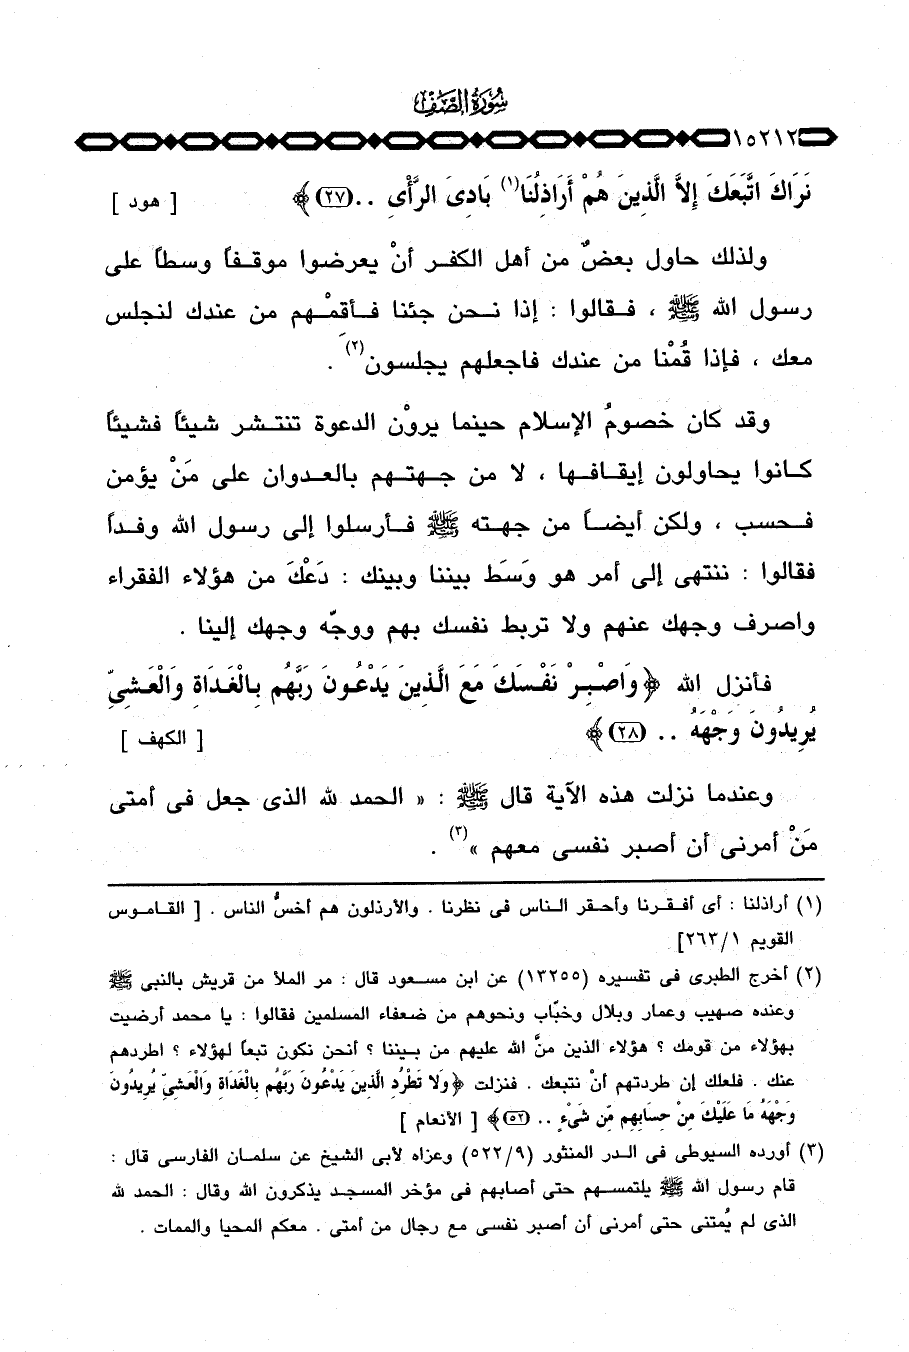 سُورَةُ الصَّفِّ
١٥٢١٢
نَرَاكَ اتَّبَعَكَ إِلاَّ الَّذِينَ هُمْ أَرَاذِلُنَا(١) بَادِىَ الرَّأْىِ .. (٢٧)﴾ [ هود ]
ولذلك حاول بعضٌ من أهل الكفر أنْ يعرضوا موقفاً وسطاً على
رسول الله ﷺ ، فقالوا : إذا نحن جئنا فأقمْهم من عندك لنجلس
معك ، فإذا قُمْنا من عندك فاجعلهم يجلسون(٢) .
وقد كان خصومُ الإسلام حينما يروْن الدعوة تنتشر شيئاً فشيئاً
كانوا يحاولون إيقافها ، لا من جهتهم بالعدوان على مَنْ يؤمن
فحسب ، ولكن أيضاً من جهته ﷺ فأرسلوا إلى رسول الله وفداً
فقالوا : ننتهى إلى أمر هو وَسَط بيننا وبينك : دَعْكَ من هؤلاء الفقراء
واصرف وجهك عنهم ولا تربط نفسك بهم ووجّه وجهك إلينا .
فأنزل الله ﴿وَاصْبِرْ نَفْسَكَ مَعَ الَّذِينَ يَدْعُونَ رَبَّهُم بِالْغَدَاةِ وَالْعَشِىِّ
يُرِيدُونَ وَجْهَهُ .. (٢٨)﴾ [ الكهف ]
وعندما نزلت هذه الآية قال ﷺ : « الحمد لله الذى جعل فى أمتى
مَنْ أمرنى أن أصبر نفسى معهم »(٣) .
(١) أراذلنا : أى أفقرنا وأحقر الناس فى نظرنا . والأرذلون هم أخسُّ الناس . [ القاموس
القويم ٢٦٣/١]
(٢) أخرج الطبرى فى تفسيره (١٣٢٥٥) عن ابن مسعود قال : مر الملأ من قريش بالنبى ﷺ
وعنده صهيب وعمار وبلال وخبّاب ونحوهم من ضعفاء المسلمين فقالوا : يا محمد أرضيت
بهؤلاء من قومك ؟ هؤلاء الذين منَّ الله عليهم من بيننا ؟ أنحن نكون تبعاً لهؤلاء ؟ اطردهم
عنك . فلعلك إن طردتهم أنْ نتبعك . فنزلت ﴿وَلا تَطْرُدِ الَّذِينَ يَدْعُونَ رَبَّهُم بِالْغَدَاةِ وَالْعَشِىِّ يُرِيدُونَ
وَجْهَهُ مَا عَلَيْكَ مِنْ حِسَابِهِم مِّن شَىْءٍ .. (٥٢)﴾ [ الأنعام ]
(٣) أورده السيوطى فى الدر المنثور (٥٢٢/٩) وعزاه لأبى الشيخ عن سلمان الفارسى قال :
قام رسول الله ﷺ يلتمسهم حتى أصابهم فى مؤخر المسجد يذكرون الله وقال : الحمد لله
الذى لم يُمتنى حتى أمرنى أن أصبر نفسى مع رجال من أمتى . معكم المحيا والممات .